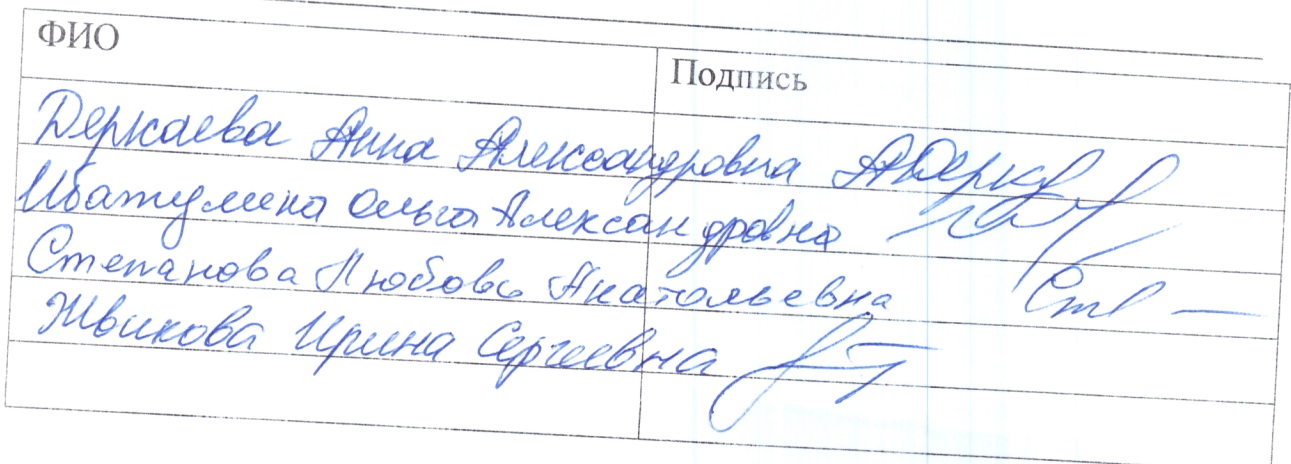 ФИО Подпись
Деркаева Анна Александровна АДерк
Ибатулина Ольга Александровна
Степанова Любовь Анатольевна Ст
Жвикова Ирина Сергеевна